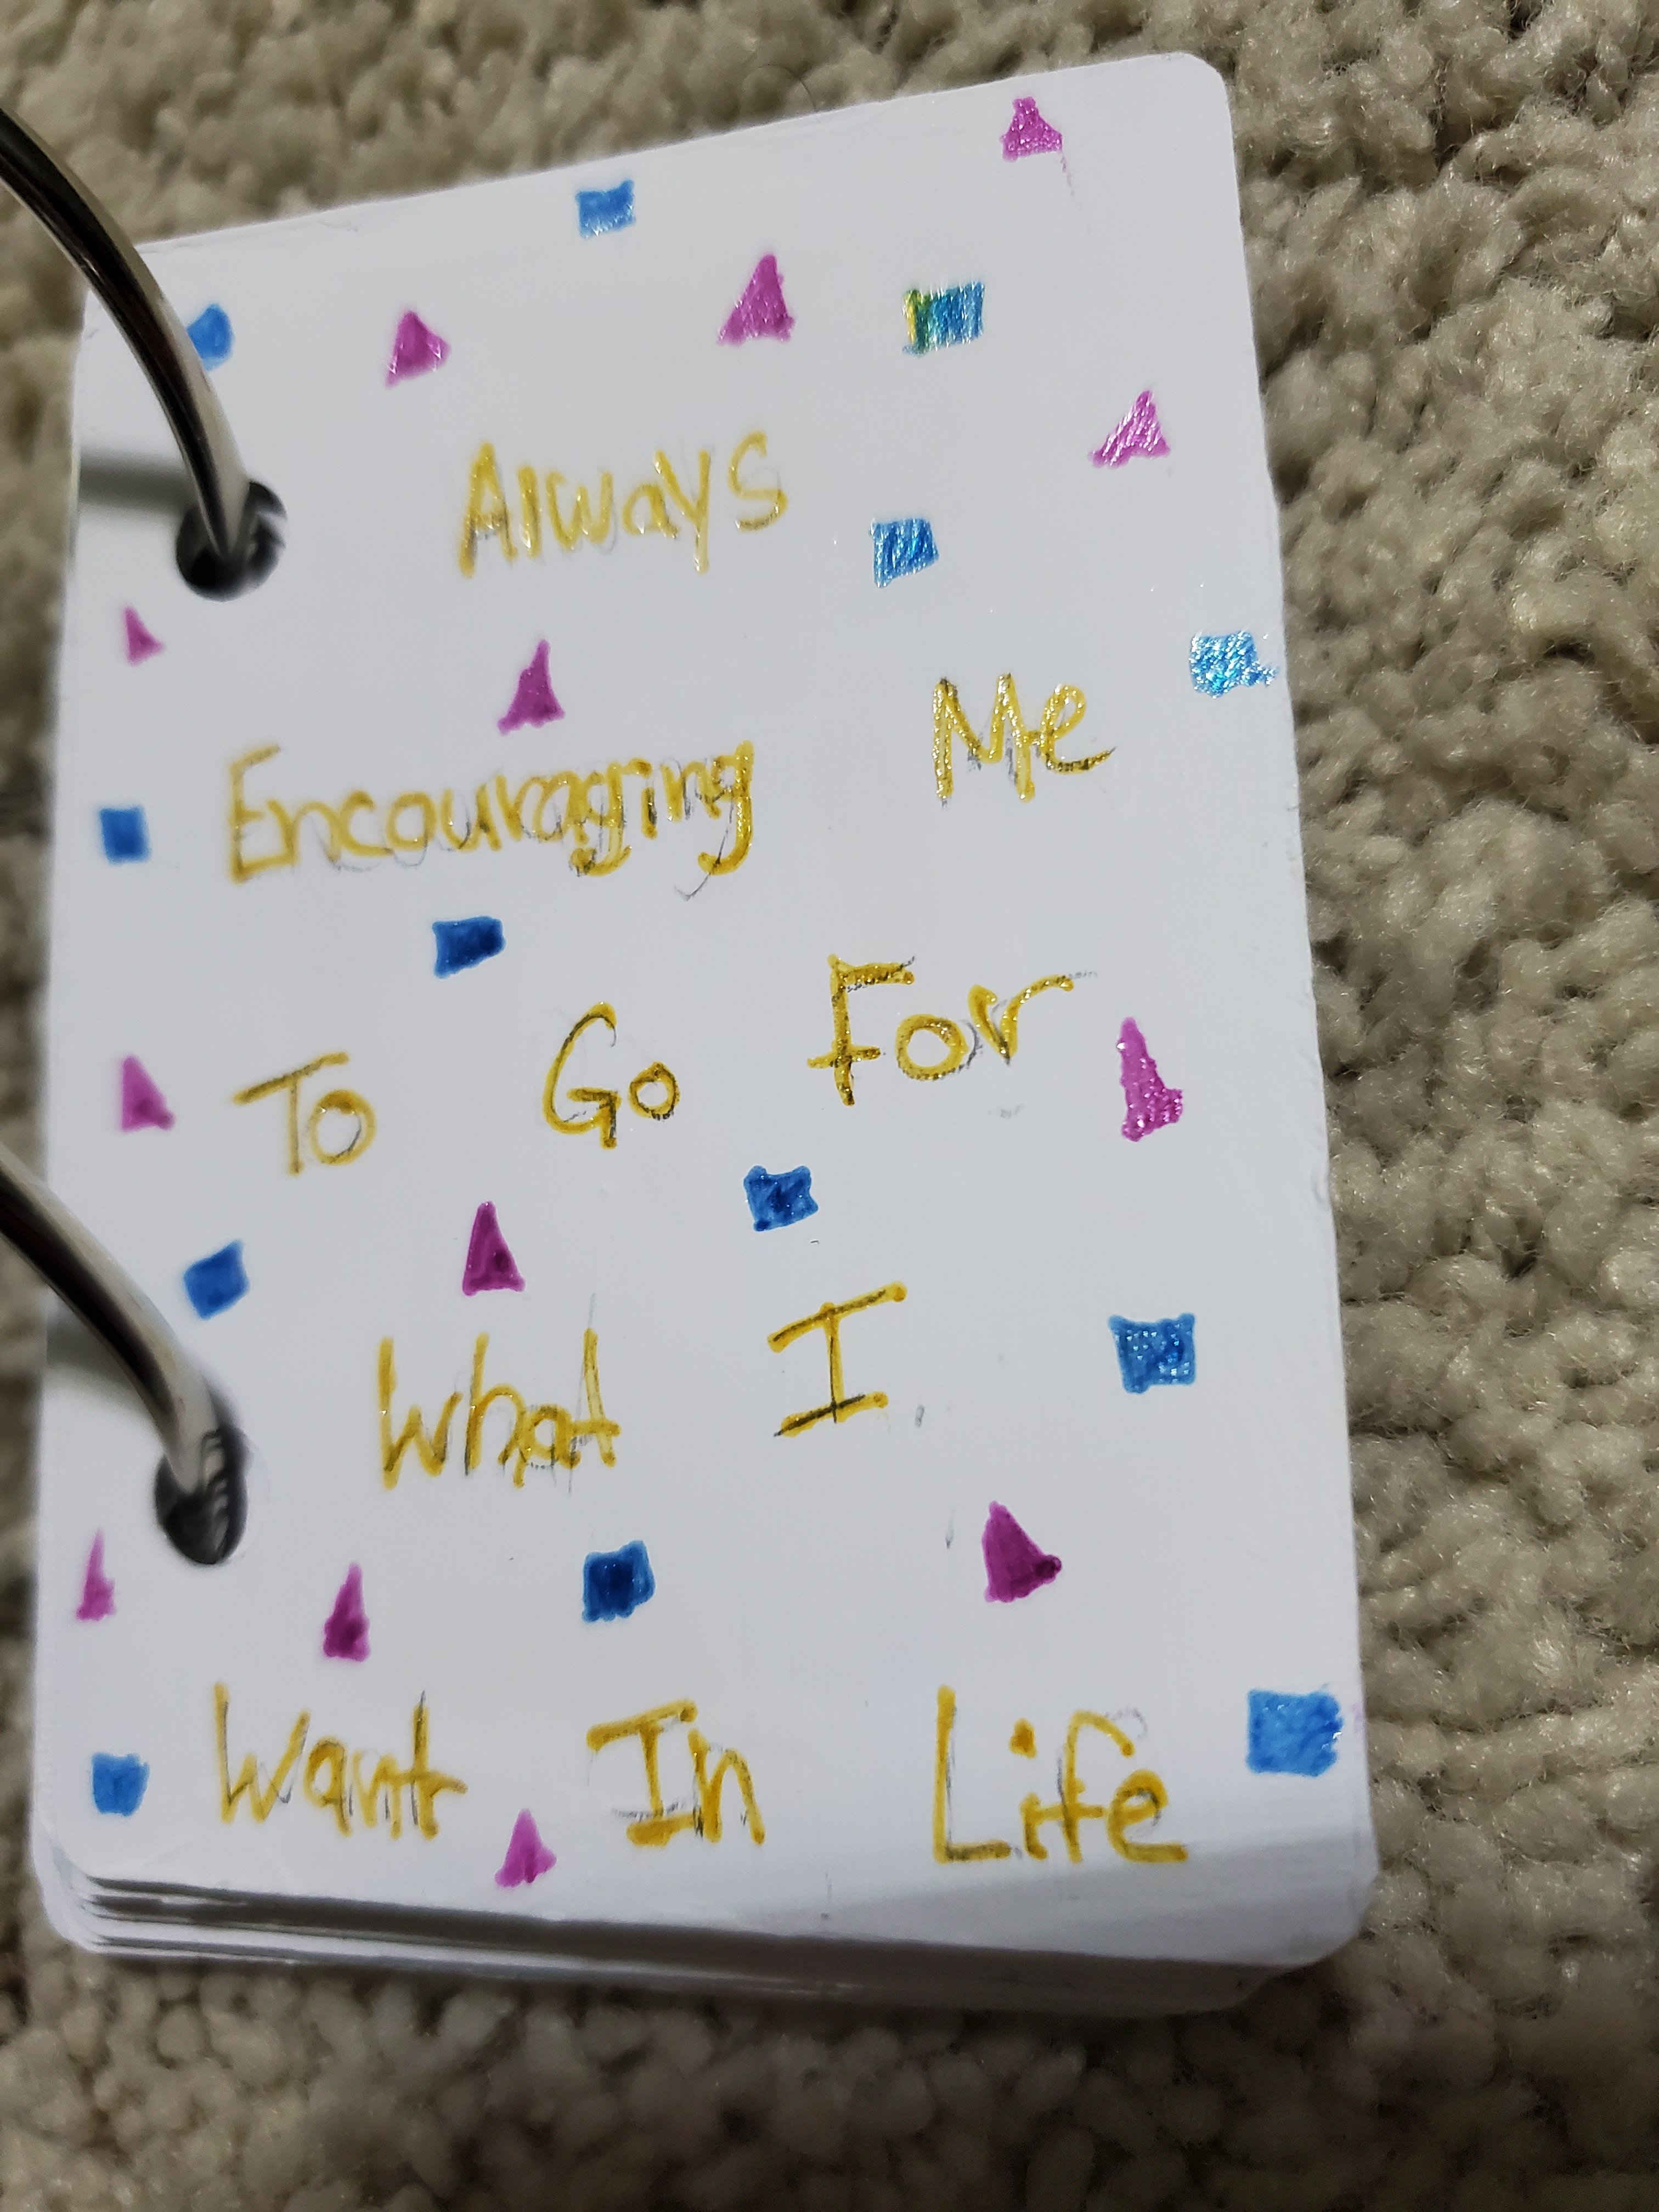 Always
Encouraging Me
To Go For
What I
Want In Life